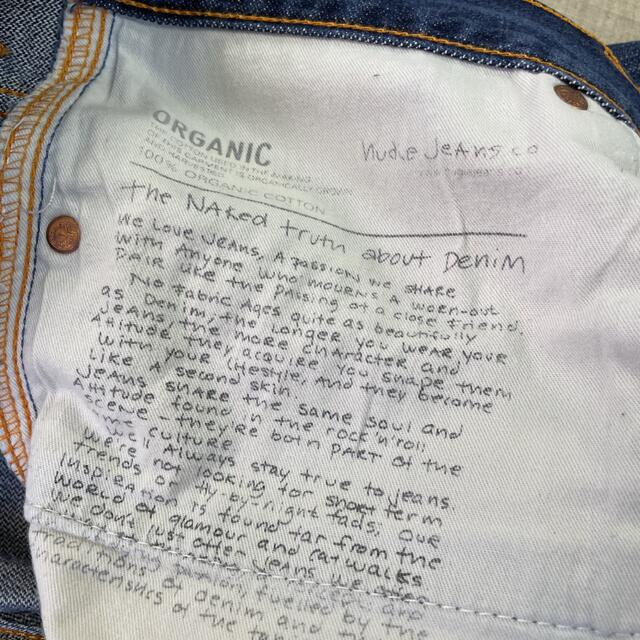 ORGANIC
THE COTTON USED IN THE MAKING
OF THIS GARMENT IS ORGANICALLY GROWN
AND HARVESTED
100% ORGANIC COTTON
Nudie Jeans co
the NAKed truth about DeniM
We Love Jeans, A passion we share
with Anyone who mourns A worn-out
pair like the passing of a close friend.
No fabric Ages quite as beautifully
as Denim, the longer you wear your
Jeans, the more character and
Attitude they acquire you shape them
with your lifestyle, And they become
like A second skin.
Jeans share the same soul and
Attitude found in the rock'n'roll
scene - they're both part of the
same culture
we'll Always stay true to jeans.
we're not looking for short term
trends or fly-by-night fads. Our
inspiration is found far from the
world of glamour and catwalks
We don't just offer jeans we
fuelled by the
traditions of denim and the
characteristics of the